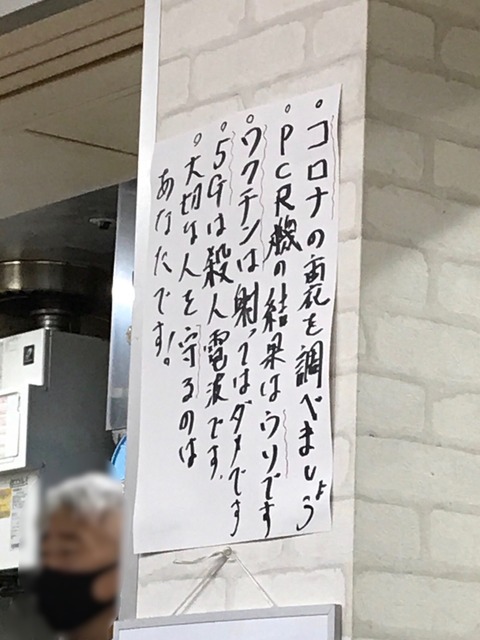 。コロナの裏を調べましょう
。PCR検の結果はウソです
。ワクチンは射ってはダメです
。5Gは殺人電波です、
。大切な人を守るのは
あなたです!。